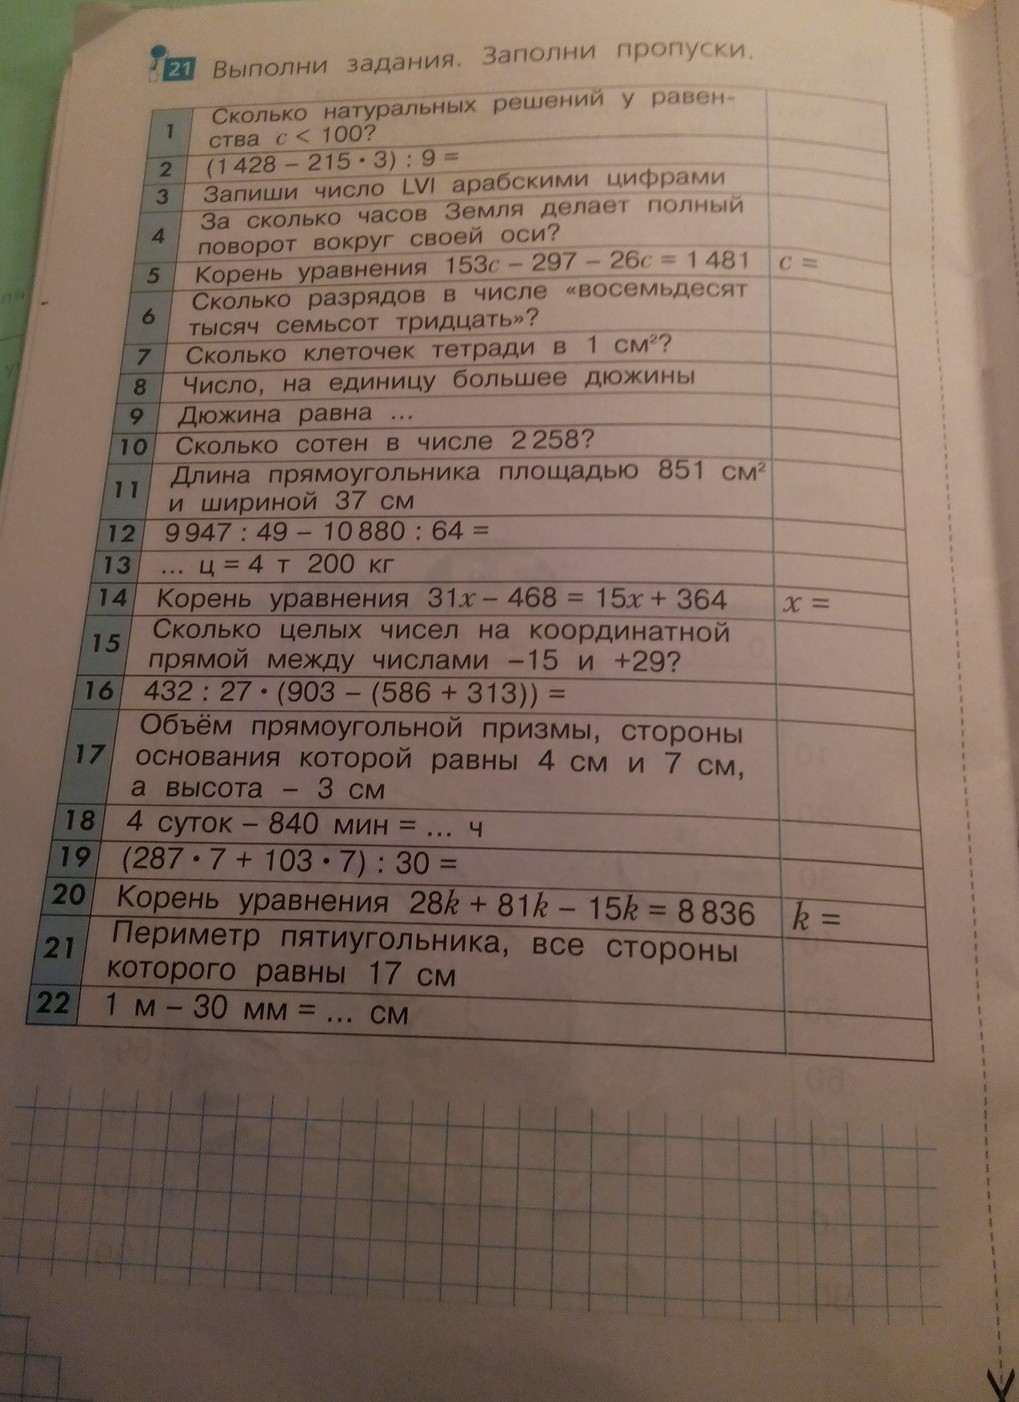 21 Выполни задания. Заполни пропуски.
1 Сколько натуральных решений у равен-
ства c < 100?
2 (1 428 – 215 · 3) : 9 =
3 Запиши число LVI арабскими цифрами
4 За сколько часов Земля делает полный
поворот вокруг своей оси?
5 Корень уравнения 153c – 297 – 26c = 1 481 c =
6 Сколько разрядов в числе «восемьдесят
тысяч семьсот тридцать»?
7 Сколько клеточек тетради в 1 см²?
8 Число, на единицу большее дюжины
9 Дюжина равна ...
10 Сколько сотен в числе 2 258?
11 Длина прямоугольника площадью 851 см²
и шириной 37 см
12 9 947 : 49 – 10 880 : 64 =
13 ... ц = 4 т 200 кг
14 Корень уравнения 31x – 468 = 15x + 364 x =
15 Сколько целых чисел на координатной
прямой между числами –15 и +29?
16 432 : 27 · (903 – (586 + 313)) =
17 Объём прямоугольной призмы, стороны
основания которой равны 4 см и 7 см,
а высота – 3 см
18 4 суток – 840 мин = ... ч
19 (287 · 7 + 103 · 7) : 30 =
20 Корень уравнения 28k + 81k – 15k = 8 836 k =
21 Периметр пятиугольника, все стороны
которого равны 17 см
22 1 м – 30 мм = ... см